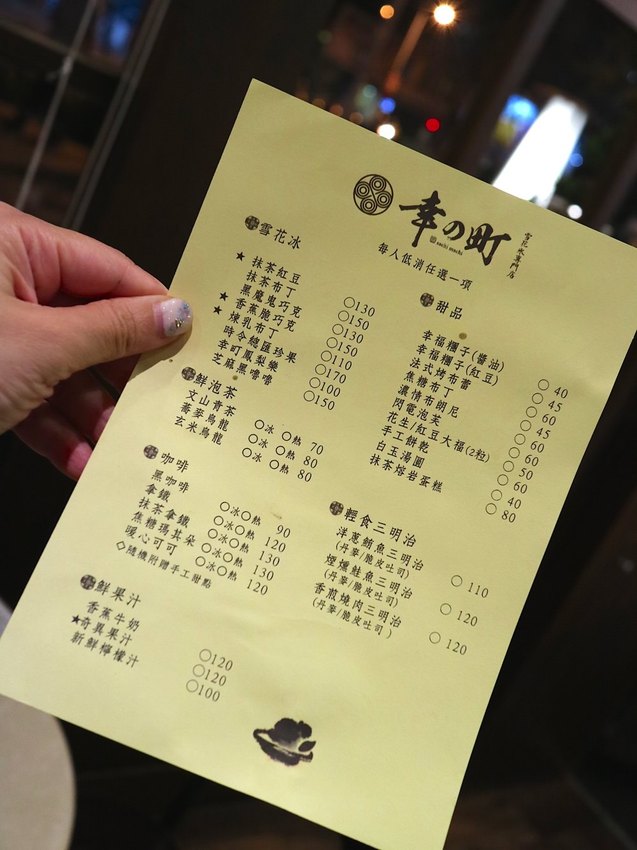 幸の町
sachi machi
雪花冰專門店
每人低消任選一項
雪花冰
★ 抹茶紅豆 ○130
抹茶布丁 ○150
黑魔鬼巧克 ○130
★ 香蕉脆巧克 ○150
★ 煉乳布丁 ○110
時令總匯珍果 ○170
幸町鳳梨樂 ○100
芝麻黑嚕嚕 ○150
鮮泡茶
文山青茶 ○冰 ○熱 70
蕎麥烏龍 ○冰 ○熱 80
玄米烏龍 ○冰 ○熱 80
咖啡
黑咖啡 ○冰○熱 90
拿鐵 ○冰○熱 120
抹茶拿鐵 ○冰○熱 130
焦糖瑪其朵 ○冰○熱 130
暖心可可 ○冰○熱 120
◇隨機附贈手工甜點
鮮果汁
香蕉牛奶 ○120
★奇異果汁 ○120
新鮮檸檬汁 ○100
甜品
幸福糰子(醬油) ○ 40
幸福糰子(紅豆) ○ 45
法式烤布蕾 ○ 60
焦糖布丁 ○ 45
濃情布朗尼 ○ 60
閃電泡芙 ○ 60
花生/紅豆大福(2粒) ○ 50
手工餅乾 ○ 60
白玉湯圓 ○ 40
抹茶熔岩蛋糕 ○ 80
輕食三明治
洋蔥鮪魚三明治 ○ 110
(丹麥/脆皮吐司)
煙燻鮭魚三明治 ○ 120
(丹麥/脆皮吐司)
香煎燒肉三明治 ○ 120
(丹麥/脆皮吐司)